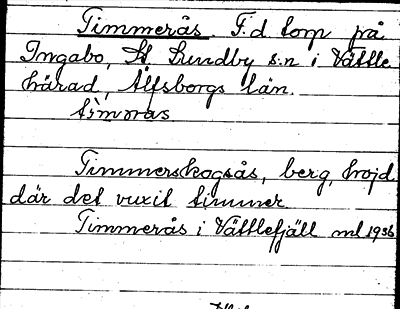 Timmerås. F.d. torp på
Ingabo, St. Lundby s:n i Vättle
härad, Älfsborgs län.
timras
Timmerskogsås, berg, höjd
där det vuxit timmer
Timmerås i Vättlefjäll ml 1936